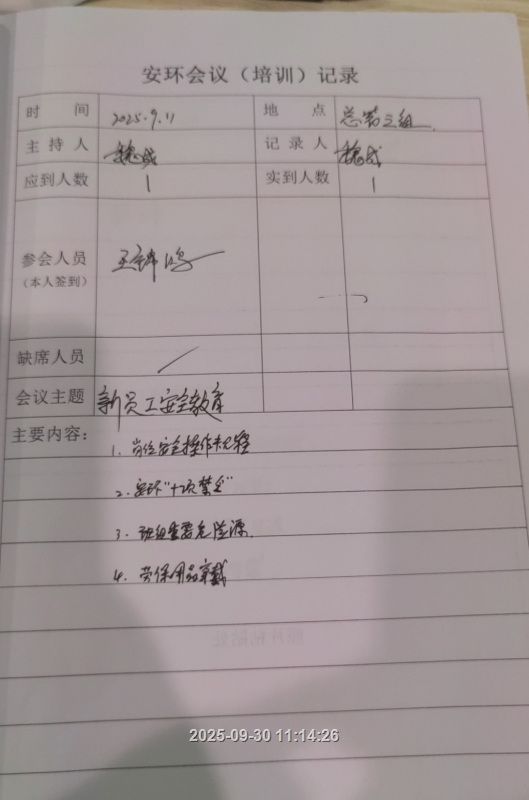 安环会议（培训）记录
时 间 2025.9.11 地 点 总第三组
主 持 人 记 录 人
应到人数 1 实到人数 1
参会人员
（本人签到）
缺席人员 /
会议主题 新员工安全教育
主要内容：
1. 岗位安全操作规程
2. 安环“十项禁令”
3. 班组重要危险源.
4. 劳保用品穿戴
2025-09-30 11:14:26